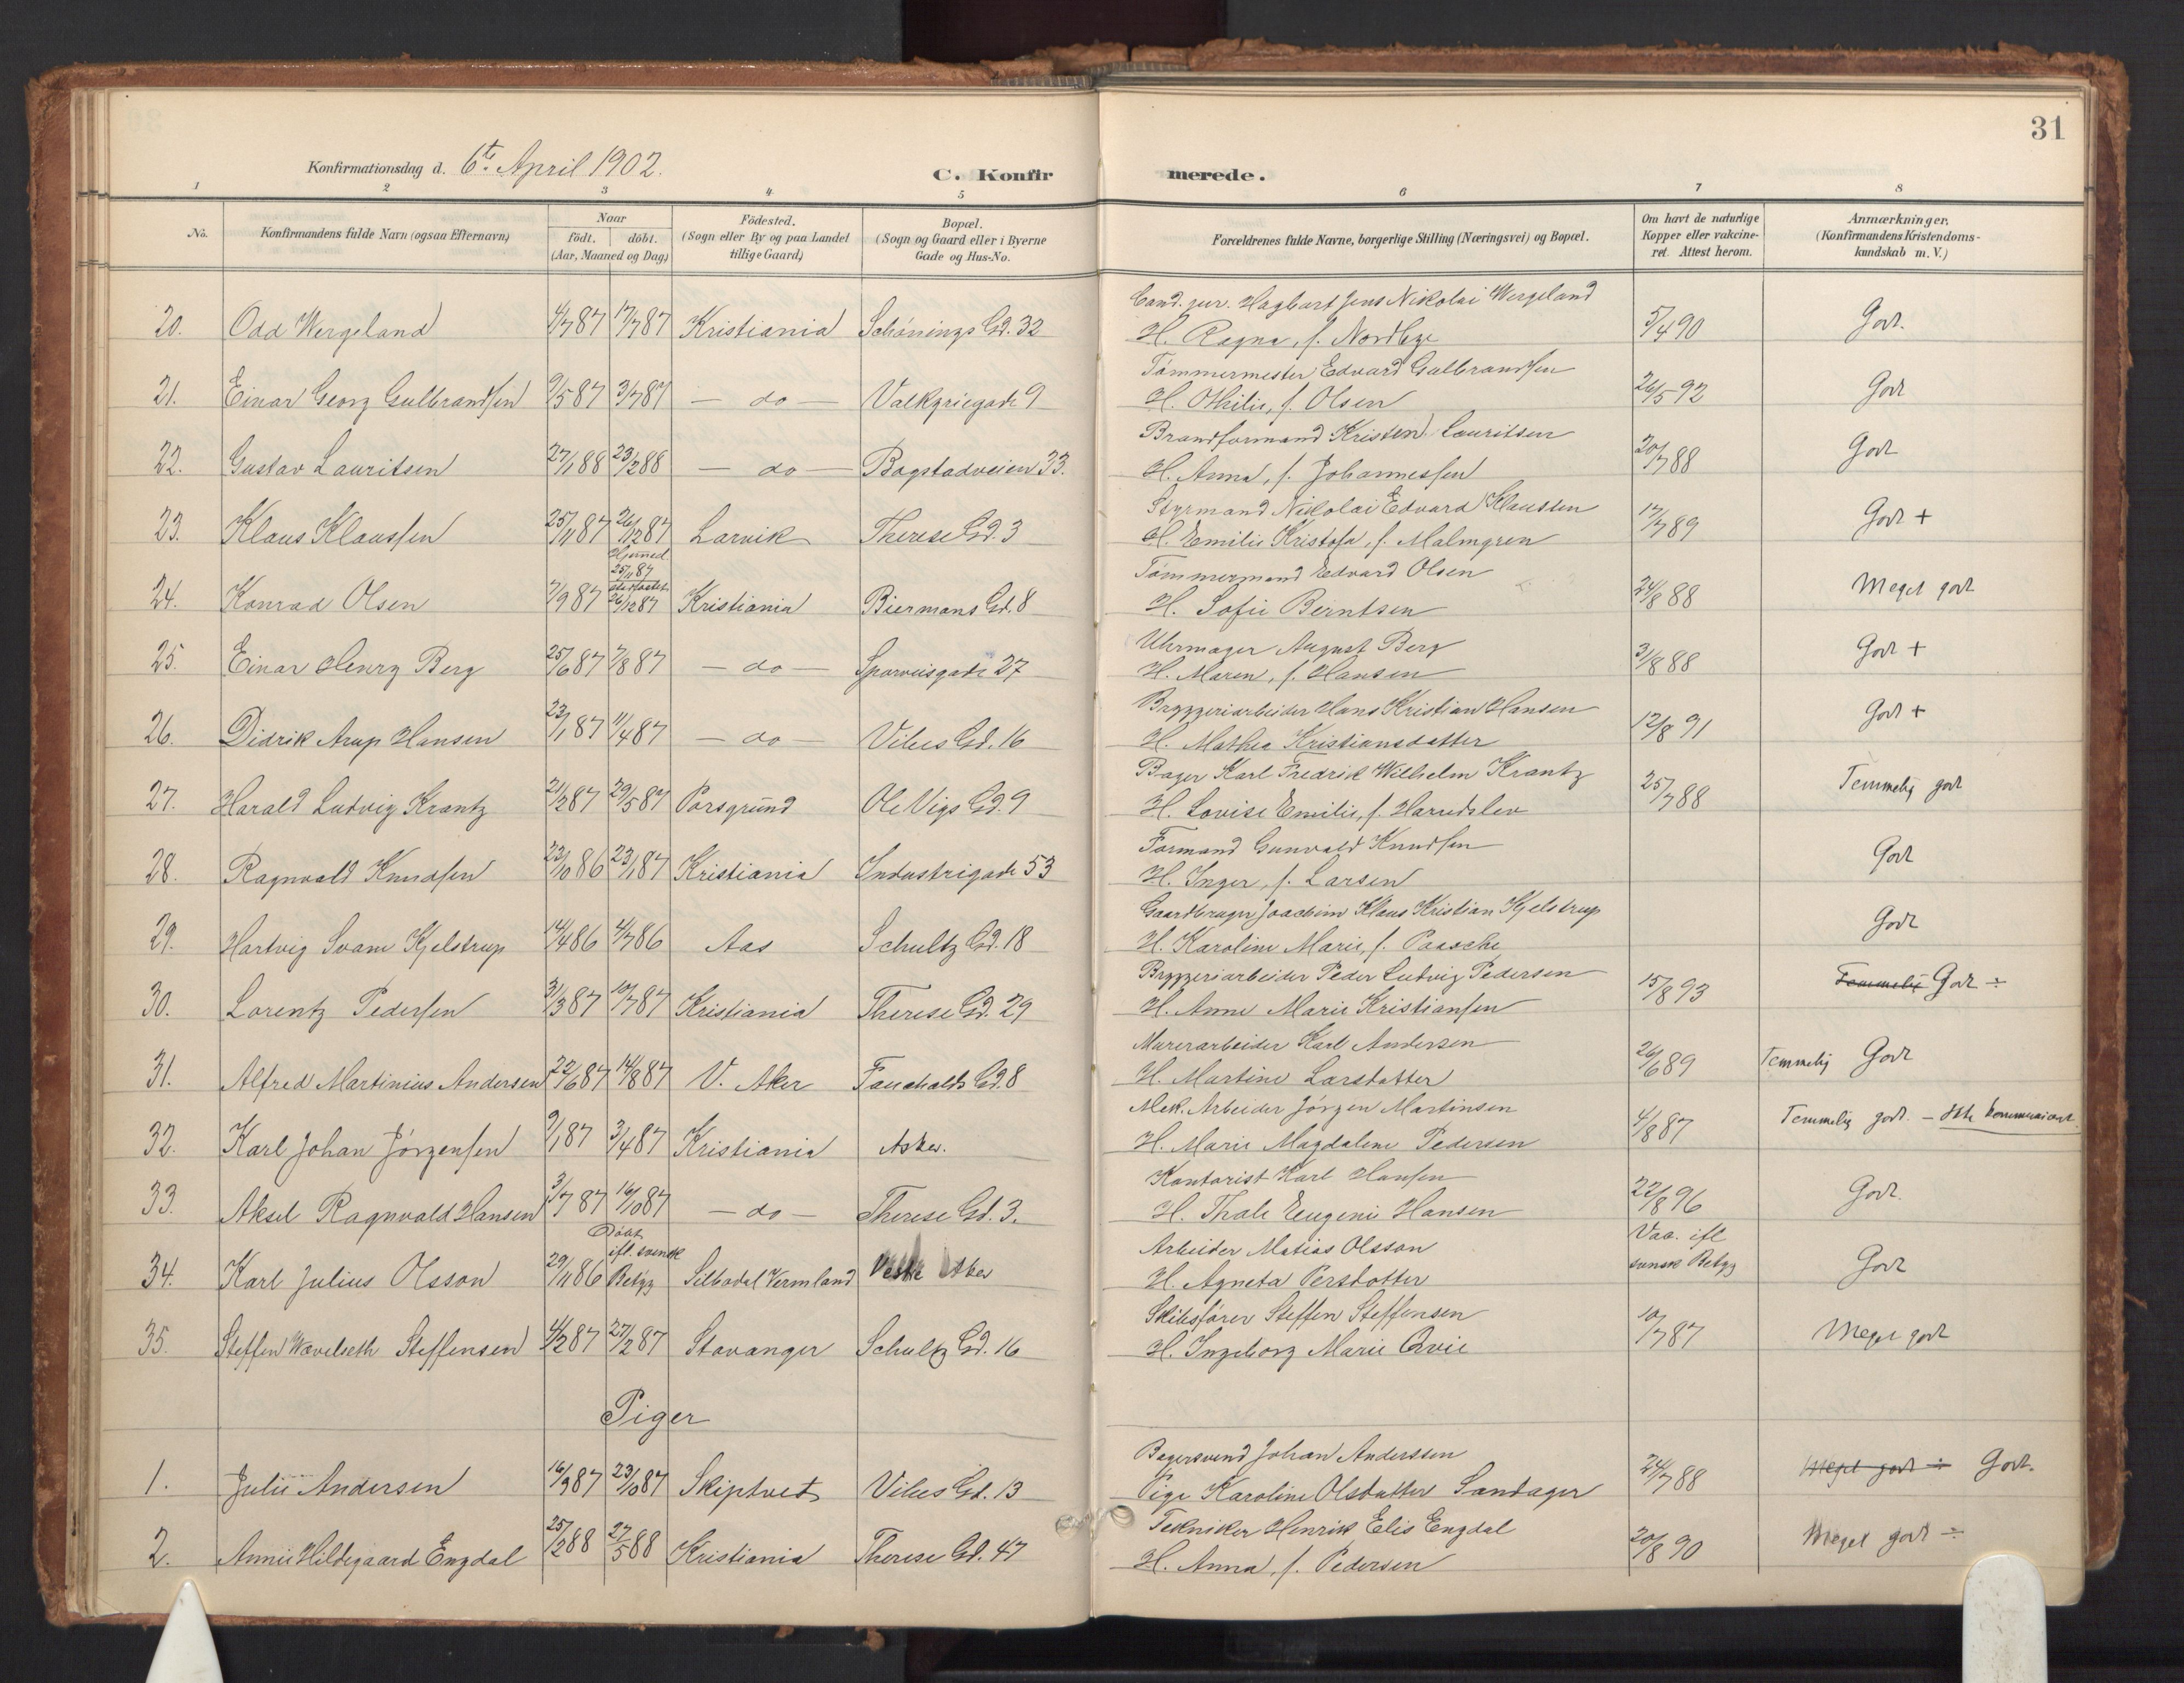 31
Konfirmationsdag d. 6te April 1902.
C. Konfirmerede.
1 2 3 4 5 6 7 8
No.
Konfirmandens fulde Navn (ogsaa Efternavn)
Naar
födt. döbt.
(Aar, Maaned og Dag)
Födested.
(Sogn eller By og paa Landet
tillige Gaard)
Bopæl.
(Sogn og Gaard eller i Byerne
Gade og Hus-No.
Forældrenes fulde Navne, borgerlige Stilling (Næringsvei) og Bopæl.
Om havt de naturlige
Kopper eller vakcine-
ret. Attest herom.
Anmærkninger.
(Konfirmandens Kristendoms-
kundskab m. V.)
Cand. jur. Hagbart Jens Nikolai Wergeland
20. Odd Wergeland 4/7 87 17/7 87 Kristiania Schönings Gd. 32 H. Ragna, f. 5/4 90 Godt.
Tømmermester Edvard Gulbrandsen
21. Einar Georg Gulbrandsen 9/5 87 3/7 87 — do — Valkyriegade 9 H. Othilie, f. Olsen 26/5 92 Godt
Brandformand Kristen Lauritsen
22. Gustav Lauritsen 27/1 88 23/2 88 — do — Bogstadveien 33. H. Anna, f. Johannessen 20/7 88 Godt
Styrmand Nikolai Edvard Klaussen
23. Klaus Klaussen 25/11 87 26/12 87 Larvik Therese Gd. 3 H. Emilie Kristofa, f. Malmgren 17/7 89 Godt +
Hjemmed.
25/11 87
stadfæstet
Tömmermand Edvard Olsen
24. Konrad Olsen 7/9 87 26/12 87 Kristiania Biermans Gd. 8 H. Sofie Berntsen 24/8 88 Meget godt
Uhrmager August Berg
25. Einar Henry Berg 25/6 87 7/8 87 — do — Sporveisgade 27 H. Maren, f. Hansen 31/8 88 Godt +
Bryggeriarbeider Hans Kristian Hansen
26. Didrik Arup Hansen 23/1 87 11/4 87 — do — Vibes Gd. 16 H. Mathea Kristiansdatter 12/8 91 Godt +
Bager Karl Fredrik Wilhelm Krantz
27. Harald Ludvig Krantz 21/2 87 29/5 87 Porsgrund Ole Vigs Gd. 9 H. Lovise Emilie, f. 25/7 88 Temmelig godt
Formand Gunvald Knudsen
28. Ragnvald Knudsen 23/10 86 23/1 87 Kristiania Industrigade 53 H. Inger, f. Larsen Godt
Gaardbruger Joachim Klaus Kristian Kjelstrup
29. Hartvig Svane Kjelstrup 14/4 86 4/7 86 Aas Schultz Gd. 18 H. Karoline Marie, f. Paasche Godt
Bryggeriarbeider Peder Ludvig Pedersen
30. Lorentz Pedersen 31/3 87 10/7 87 Kristiania Therese Gd. 29 H. Anne Marie Kristiansen 15/8 93 Temmelig Godt ÷
Murerarbeider Karl Andersen
31. Alfred Martinius Andersen 22/6 87 14/8 87 V. Aker Fauchalds Gd. 8 H. Martine Larsdatter 26/6 89 Temmelig Godt
Mek. Arbeider Jörgen Martinsen
32. Karl Johan Jörgensen 9/1 87 3/4 87 Kristiania Asker. H. Marie Magdalene Pedersen 4/8 87 Temmelig godt. — ikke kommunicert.
Kontorist Karl Hansen
33. Aksel Ragnvald Hansen 3/7 87 16/10 87 — do — Therese Gd. 3. H. Thale Eugenie Hansen 22/8 96 Godt.
Döbt
ifl. svensk
Arbeider Matias Olsson Vac. ifl
34. Karl Julius Olsson 29/11 86 Betyg Silbodal Vermland Vestre Aker H. Agneta Persdotter svensk Betyg Godt
Skibsförer Steffen Steffensen
35. Steffen Steffensen 4/2 87 27/2 87 Stavanger Schultz Gd. 16 H. Ingeborg Marie Qvie 10/7 87 Meget godt
Piger
Bagersvend Johan Anderssen
1. Julie Andersen 16/9 87 23/10 87 Skiptvet Vibes Gd. 13 Pige Karoline Olsdatter Sandager 24/7 88 Meget godt ÷ Godt.
Tekniker Henrik Elis Engdal
2. Annie Hildegaard Engdal 25/2 88 27/5 88 Kristiania Therese Gd. 47 H. Anna, f. Pedersen 20/8 90 Meget godt ÷